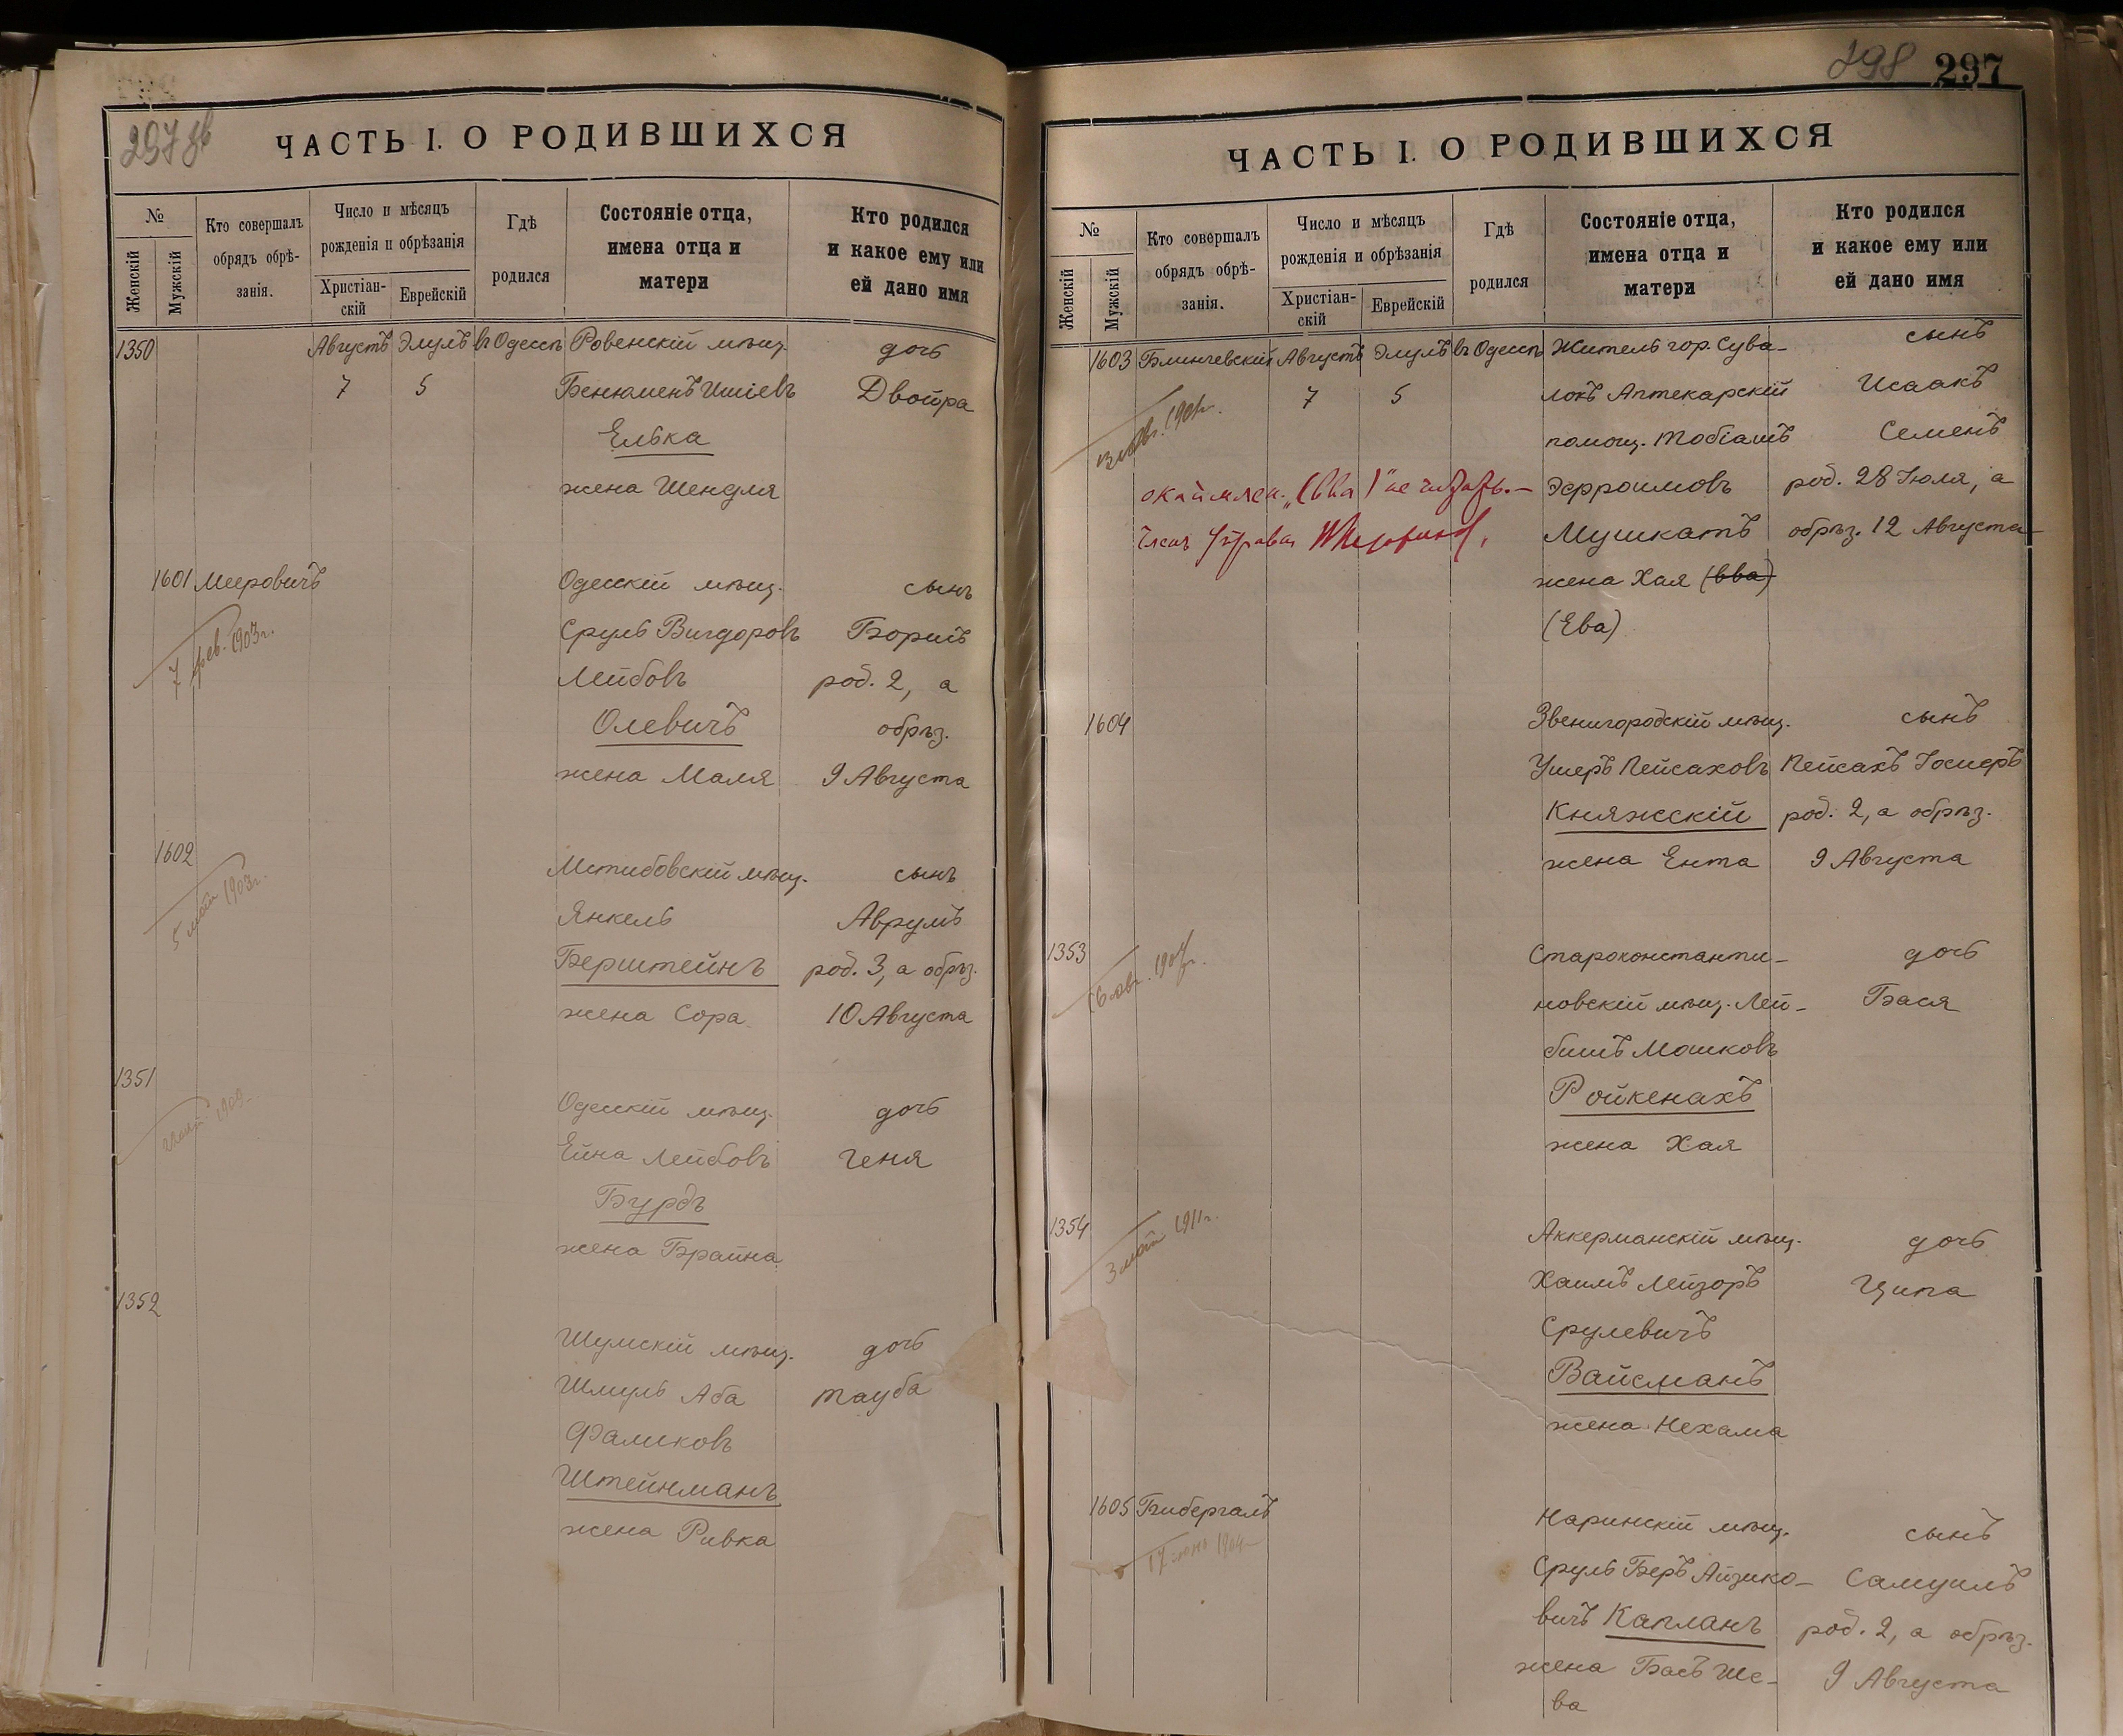 297 об
ЧАСТЬ I. О РОДИВШИХСЯ
№
Женскій
Мужскій
Кто совершалъ
обрядъ обрѣ-
занія.
Число и мѣсяцъ
рожденія и обрѣзанія
Христіан-
скій
Еврейскій
Гдѣ
родился
Состояніе отца,
имена отца и
матери
Кто родился
и какое ему или
ей дано имя
1350 Августъ Элулъ въ Одессѣ Ровенскій мѣщ. дочь
7 5 Бенюменъ Ишіевъ Двойра
Елька
жена Шендля
1601 Мееровичъ Одесскій мѣщ. сынъ
7 фев. 1903г. Сруль Вигдоровъ Борисъ
Лейбовъ род. 2, а
Олевичъ обрѣз.
жена Маля 9 Августа
1602 Мстибовскій мѣщ. сынъ
5 1903г. Янкель Аврумъ
Берштейнъ род. 3, а обрѣз.
жена Сора 10 Августа
1351 Одесскій мѣщ. дочь
Ейна Лейбовъ Геня
Бурдъ
жена Брайна
1352 Шумскій мѣщ. дочь
Шмуль Аба Тауба
Фаликовъ
Штейнманъ
жена Ривка
298 297
ЧАСТЬ I. О РОДИВШИХСЯ
№
Женскій
Мужскій
Кто совершалъ
обрядъ обрѣ-
занія.
Число и мѣсяцъ
рожденія и обрѣзанія
Христіан-
скій
Еврейскій
Гдѣ
родился
Состояніе отца,
имена отца и
матери
Кто родился
и какое ему или
ей дано имя
1603 Блинчевскій Августъ Элулъ въ Одессѣ Житель гор. Сува- сынъ
7 5 локъ Аптекарскій Исаакъ
помощ. Тобіашъ Семенъ
(вва)" не читать. — Эфроимовъ род. 28 Іюля, а
Членъ Управы Мушкатъ обрѣз. 12 Августа
жена Хая (вва)
(Ева)
1604 Звенигородскій мѣщ. сынъ
Ушеръ Пейсаховъ Пейсахъ Іосиеръ
Княжскій род. 2, а обрѣз.
жена Ента 9 Августа
1353 Староконстанти- дочь
новскій мѣщ. Лей- Бася
бишъ Мошковъ
Ройкенахъ
жена Хая
1354 Аккерманскій мѣщ. дочь
3 1911г. Хаимъ Лейзоръ Ципа
Срулевичъ
Вайсманъ
жена Нехама
1605 Бибергалъ Наринскій мѣщ. сынъ
Сруль Беръ Айзико- Самуилъ
вичъ Капланъ род. 2, а обрѣз.
жена Басъ Ше- 9 Августа
ва